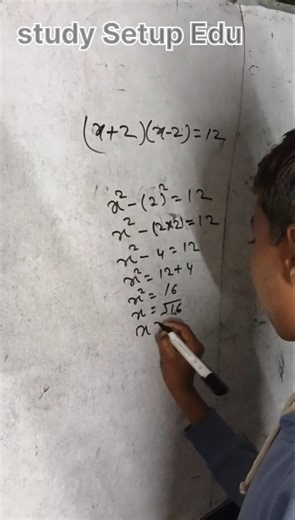 study Setup Edu
(x+2)(x-2)=12
x²-(2)²=12
x²-(2×2)=12
x²-4=12
x²=12+4
x²=16
x=√16
x